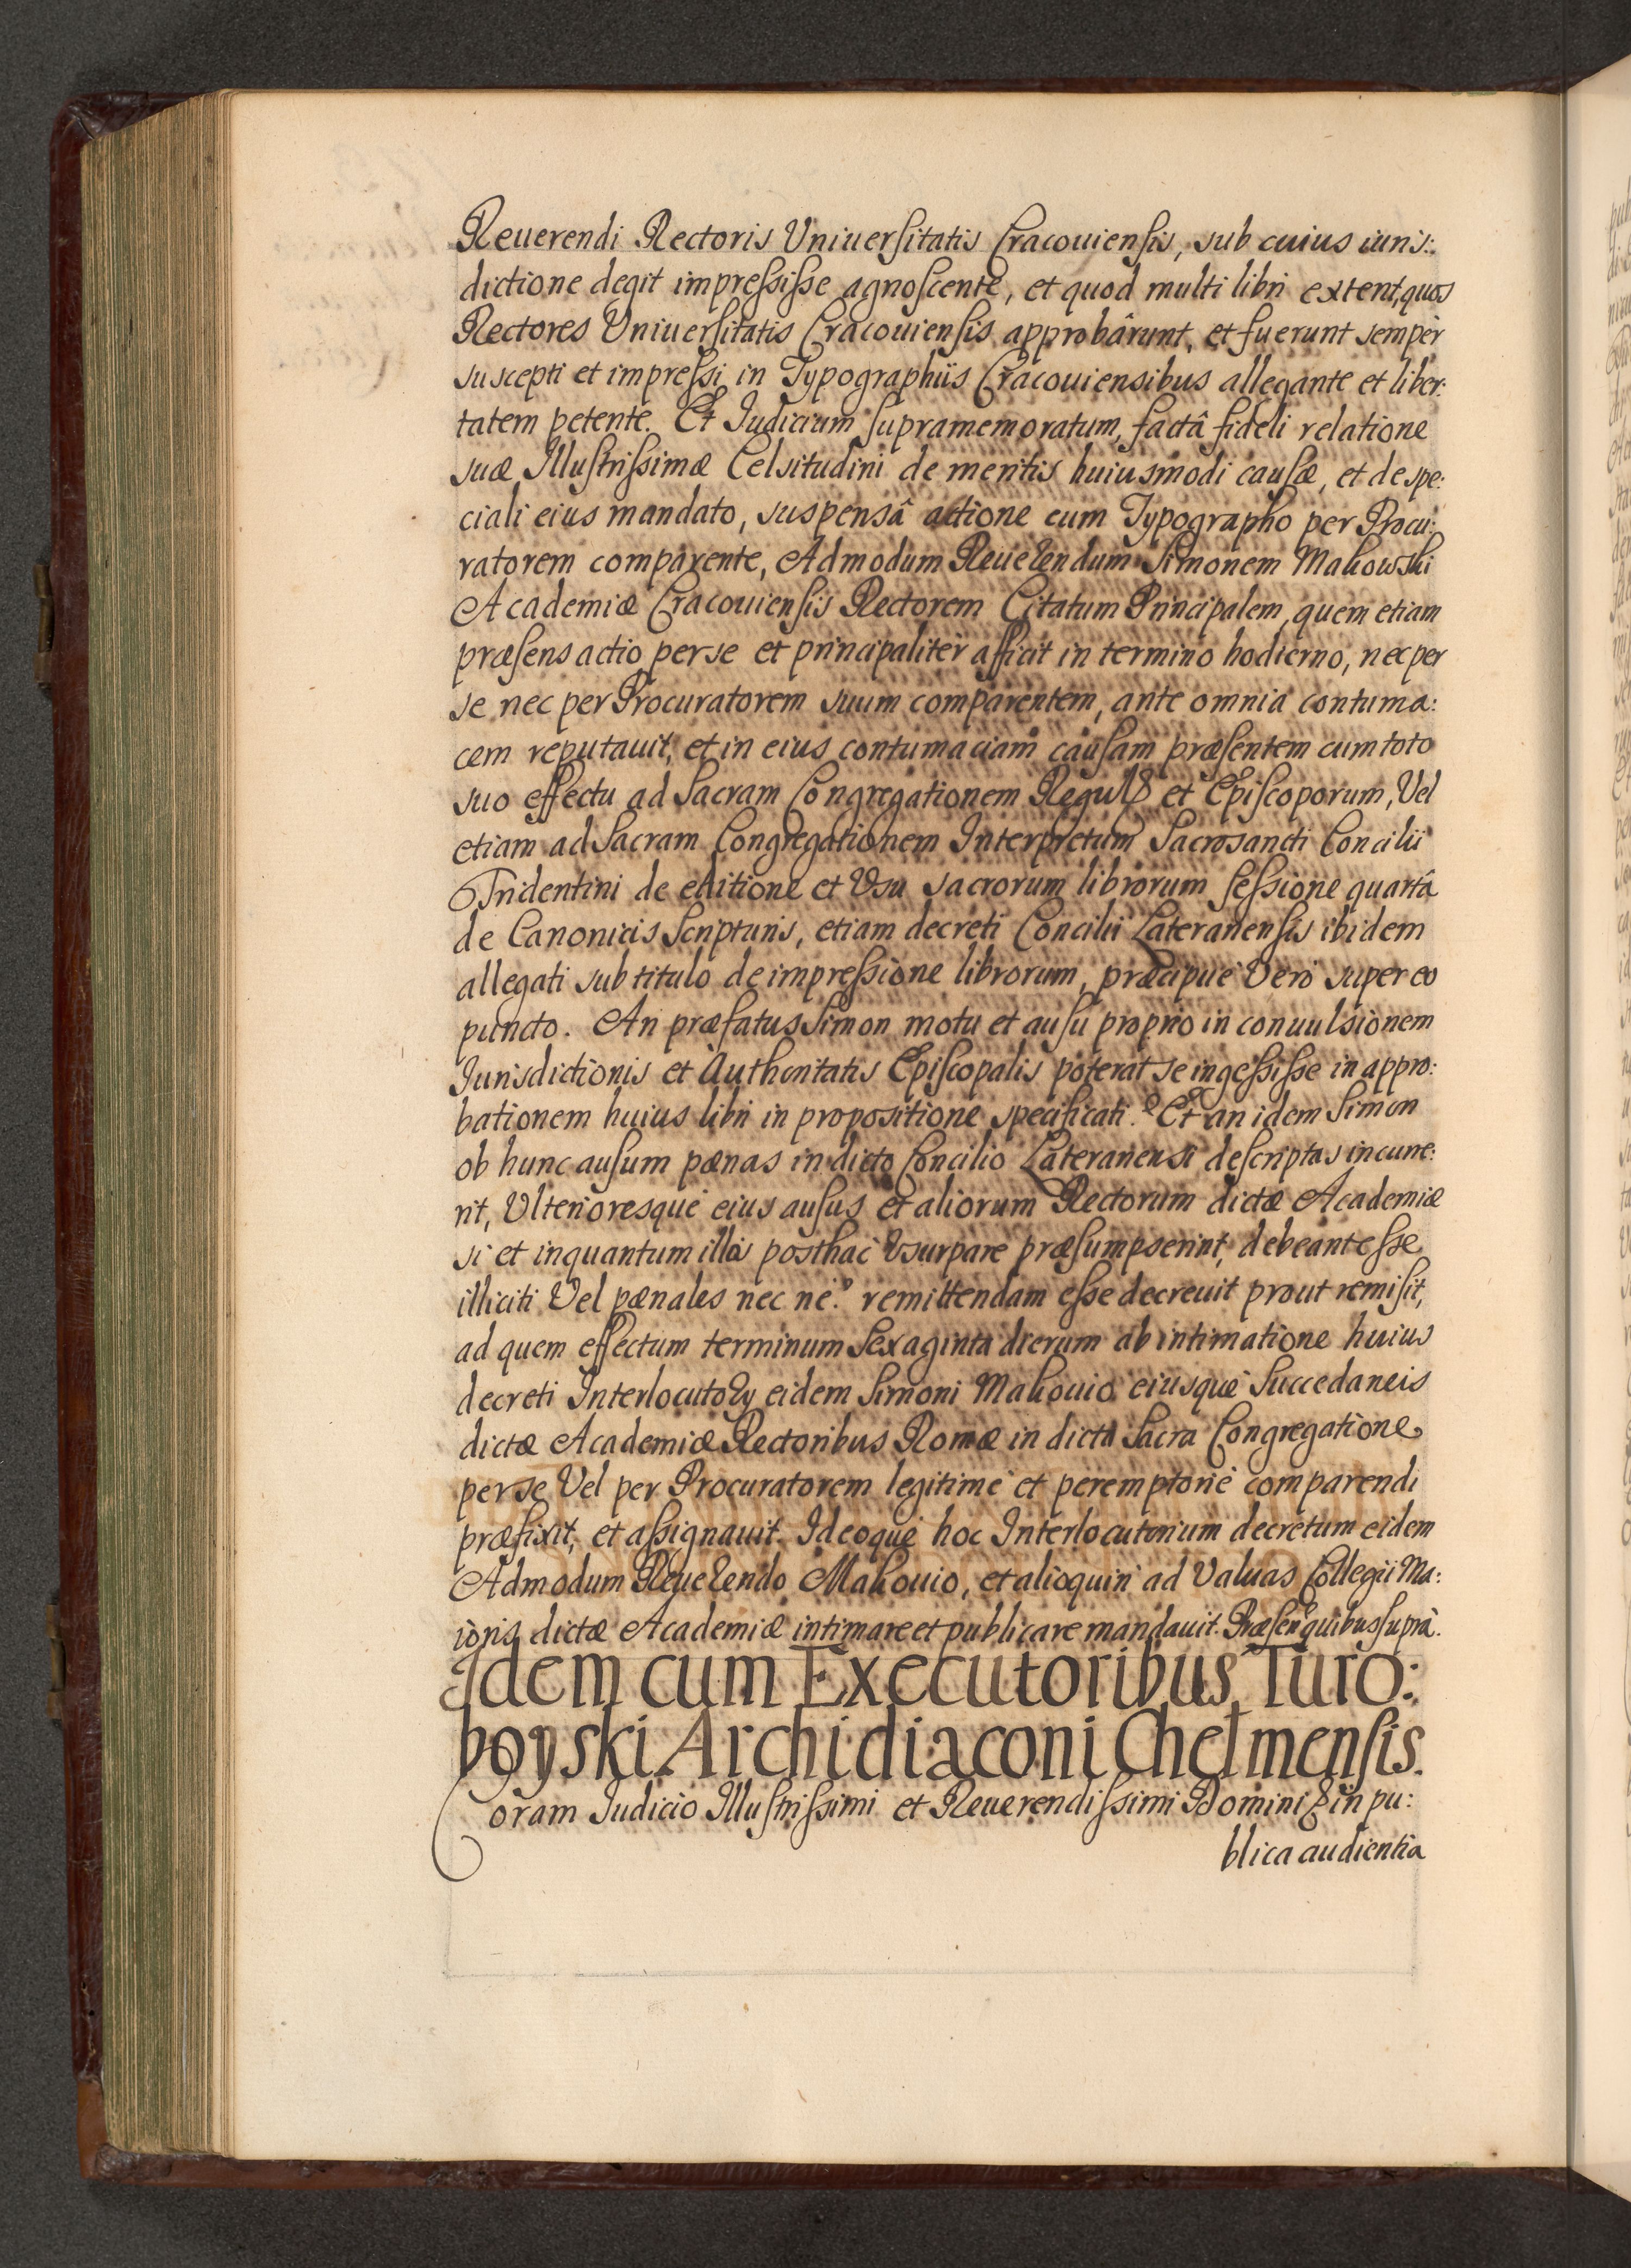 Reuerendi Rectoris Uniuersitatis Cracouiensis, sub cuius iuris:
dictione degit impressisse agnoscente, et quod multi libri extent, quos
Rectores Uniuersitatis Cracouiensis approbârunt, et fuerunt sempèr
suscepti et impressi in Typographiis Cracouiensibus allegante et liber:
tatem petente. Et Iudicium supramemoratum, factâ fideli relatione
suæ Illustrissimæ Celsitudini de meritis huiusmodi causæ, et de spe:
ciali eius mandato, suspensâ actione cum Typographo per Procu:
ratorem comparente, Admodum Reuerendum Simonem Makowski
Academiæ Cracouiensis Rectorem Citatum Principalem, quem etiam
præsens actio per se et principalitèr afficit in termino hodierno, nec per
se nec per Procuratorem suum comparentem, ante omnia contuma:
cem reputauit, et in eius contumaciam causam præsentem cum toto
suo effectu ad Sacram Congregationem et Episcoporum, Vel
etiam ad Sacram Congregationem Interpretum Sacrosancti Concilii
Tridentini de editione et Vsu sacrorum librorum sessione quartâ
de Canonicis Scripturis, etiam decreti Concilii Lateranensis ibidem
allegati sub titulo de impressione librorum, præcipuè Verò super eo
puncto. An præfatus Simon motu et ausu proprio in conuulsionem
Iurisdictionis et Authoritatis Episcopalis poterat se ingessisse in appro:
bationem huius libri in propositione specificati? Et an idem Simon
ob hunc ausum pænas in dicto Concilio Lateranensi descriptas incurre:
rit, Vlterioresquè eius ausus et aliorum Rectorum dictæ Academiæ
si et inquantum illa posthac Vsurpare præsumpserint, debeant esse
illiciti Vel pænales nec nè? remittendam esse decreuit prout remisit,
ad quem effectum terminum Sexaginta dierum ab intimatione huius
decreti Interlocutory eidem Simoni Makouio eiusquè Succedaneis
dictæ Academiæ Rectoribus Romæ in dicta Sacra Congregatione
per se Vel per Procuratorem legitimè et peremptoriè comparendi
præfixit, et assignauit. Ideoquè hoc Interlocutorium decretum eidem
Admodum Reuerendo Makouio, et alioquin ad Valuas Collegii Ma:
ioris dictæ Academiæ intimare et publicare mandauit. quibus suprà.
Idem cum Executoribus Turo:
boyski Archidiaconi Chelmensis.
Coram Iudicio Illustrissimi et Reuerendissimi Domini & in pu:
blica audientia